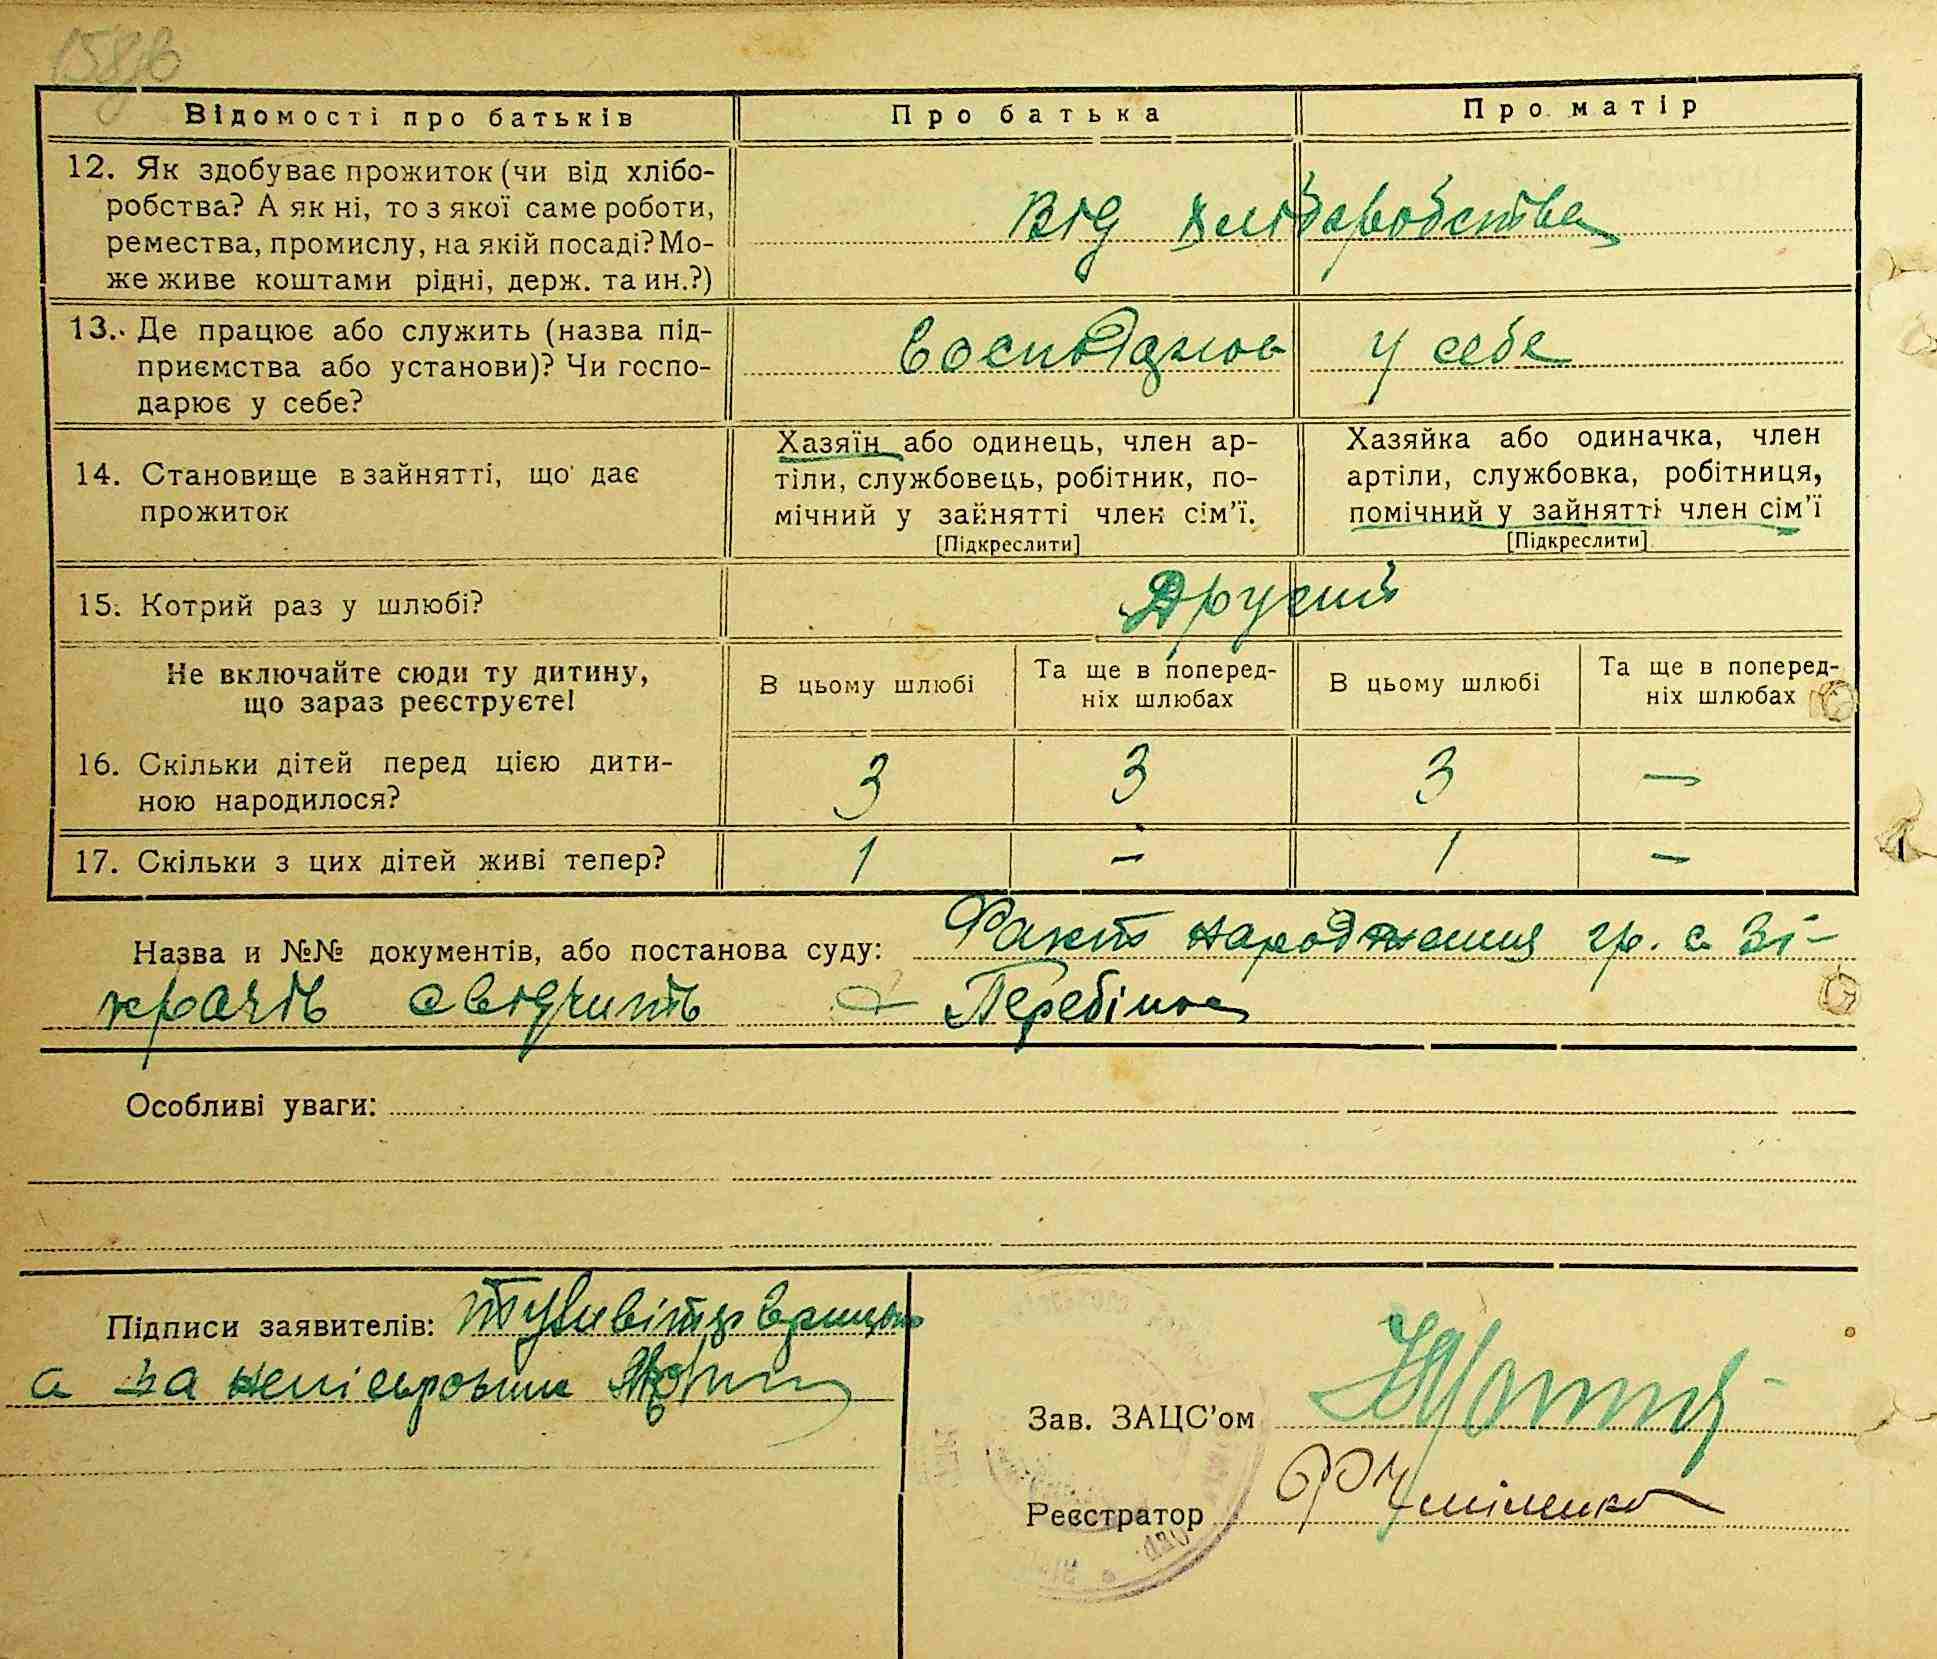 158зв
Відомості про батьків
Про батька
Про матір
12. Як здобуває прожиток (чи від хлібо-
робства? А як ні, то з якої саме роботи,
ремества, промислу, на якій посаді? Мо-
же живе коштами рідні, держ. та ин.?)
Від хліборобства
13. Де працює або служить (назва під-
приємства або установи)? Чи госпо-
дарює у себе?
у себе
14. Становище в зайнятті, що дає
прожиток
Хазяїн або одинець, член ар-
тіли, службовець, робітник, по-
мічний у зайнятті член сім'ї.
[Підкреслити]
Хазяйка або одиначка, член
артіли, службовка, робітниця,
помічний у зайнятті член сім'ї
[Підкреслити]
15. Котрий раз у шлюбі?
Другий
Не включайте сюди ту дитину,
що зараз реєструєте!
В цьому шлюбі
Та ще в поперед-
ніх шлюбах
В цьому шлюбі
Та ще в поперед-
ніх шлюбах
16. Скільки дітей перед цією дити-
ною народилося?
3 3 3 —
17. Скільки з цих дітей живі тепер?
1 – 1 –
Назва и №№ документів, або постанова суду: Факт народження гр. с Зі-
крачів свідчить Перебійно
Особливі уваги:
Підписи заявителів:
а за неписьменн
Зав. ЗАЦС'ом
Реєстратор